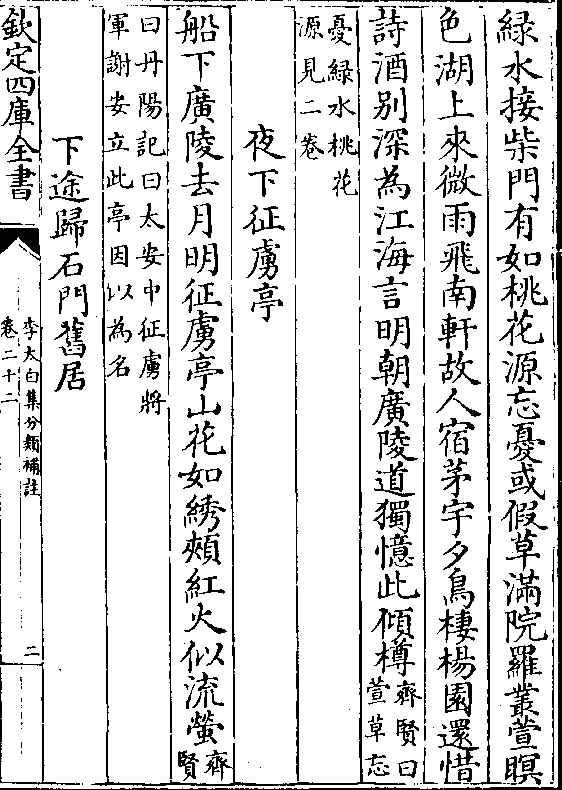 緑水接柴門有如桃花源忘憂或假草滿院羅叢萱暝
色湖上來微雨飛南軒故人宿茅宇夕鳥棲楊園還惜
詩酒别深為江海言明朝廣陵道獨憶此傾樽齊賢曰
萱草忘
憂緑水桃花
源見二卷
夜下征虜亭
船下廣陵去月明征虜亭山花如綉頰紅火似流螢齊
賢
曰丹陽記曰太安中征虜將
軍謝安立此亭因以為名
下途歸石門舊居
欽定四庫全書
李太白集分類補註
卷二十二
二